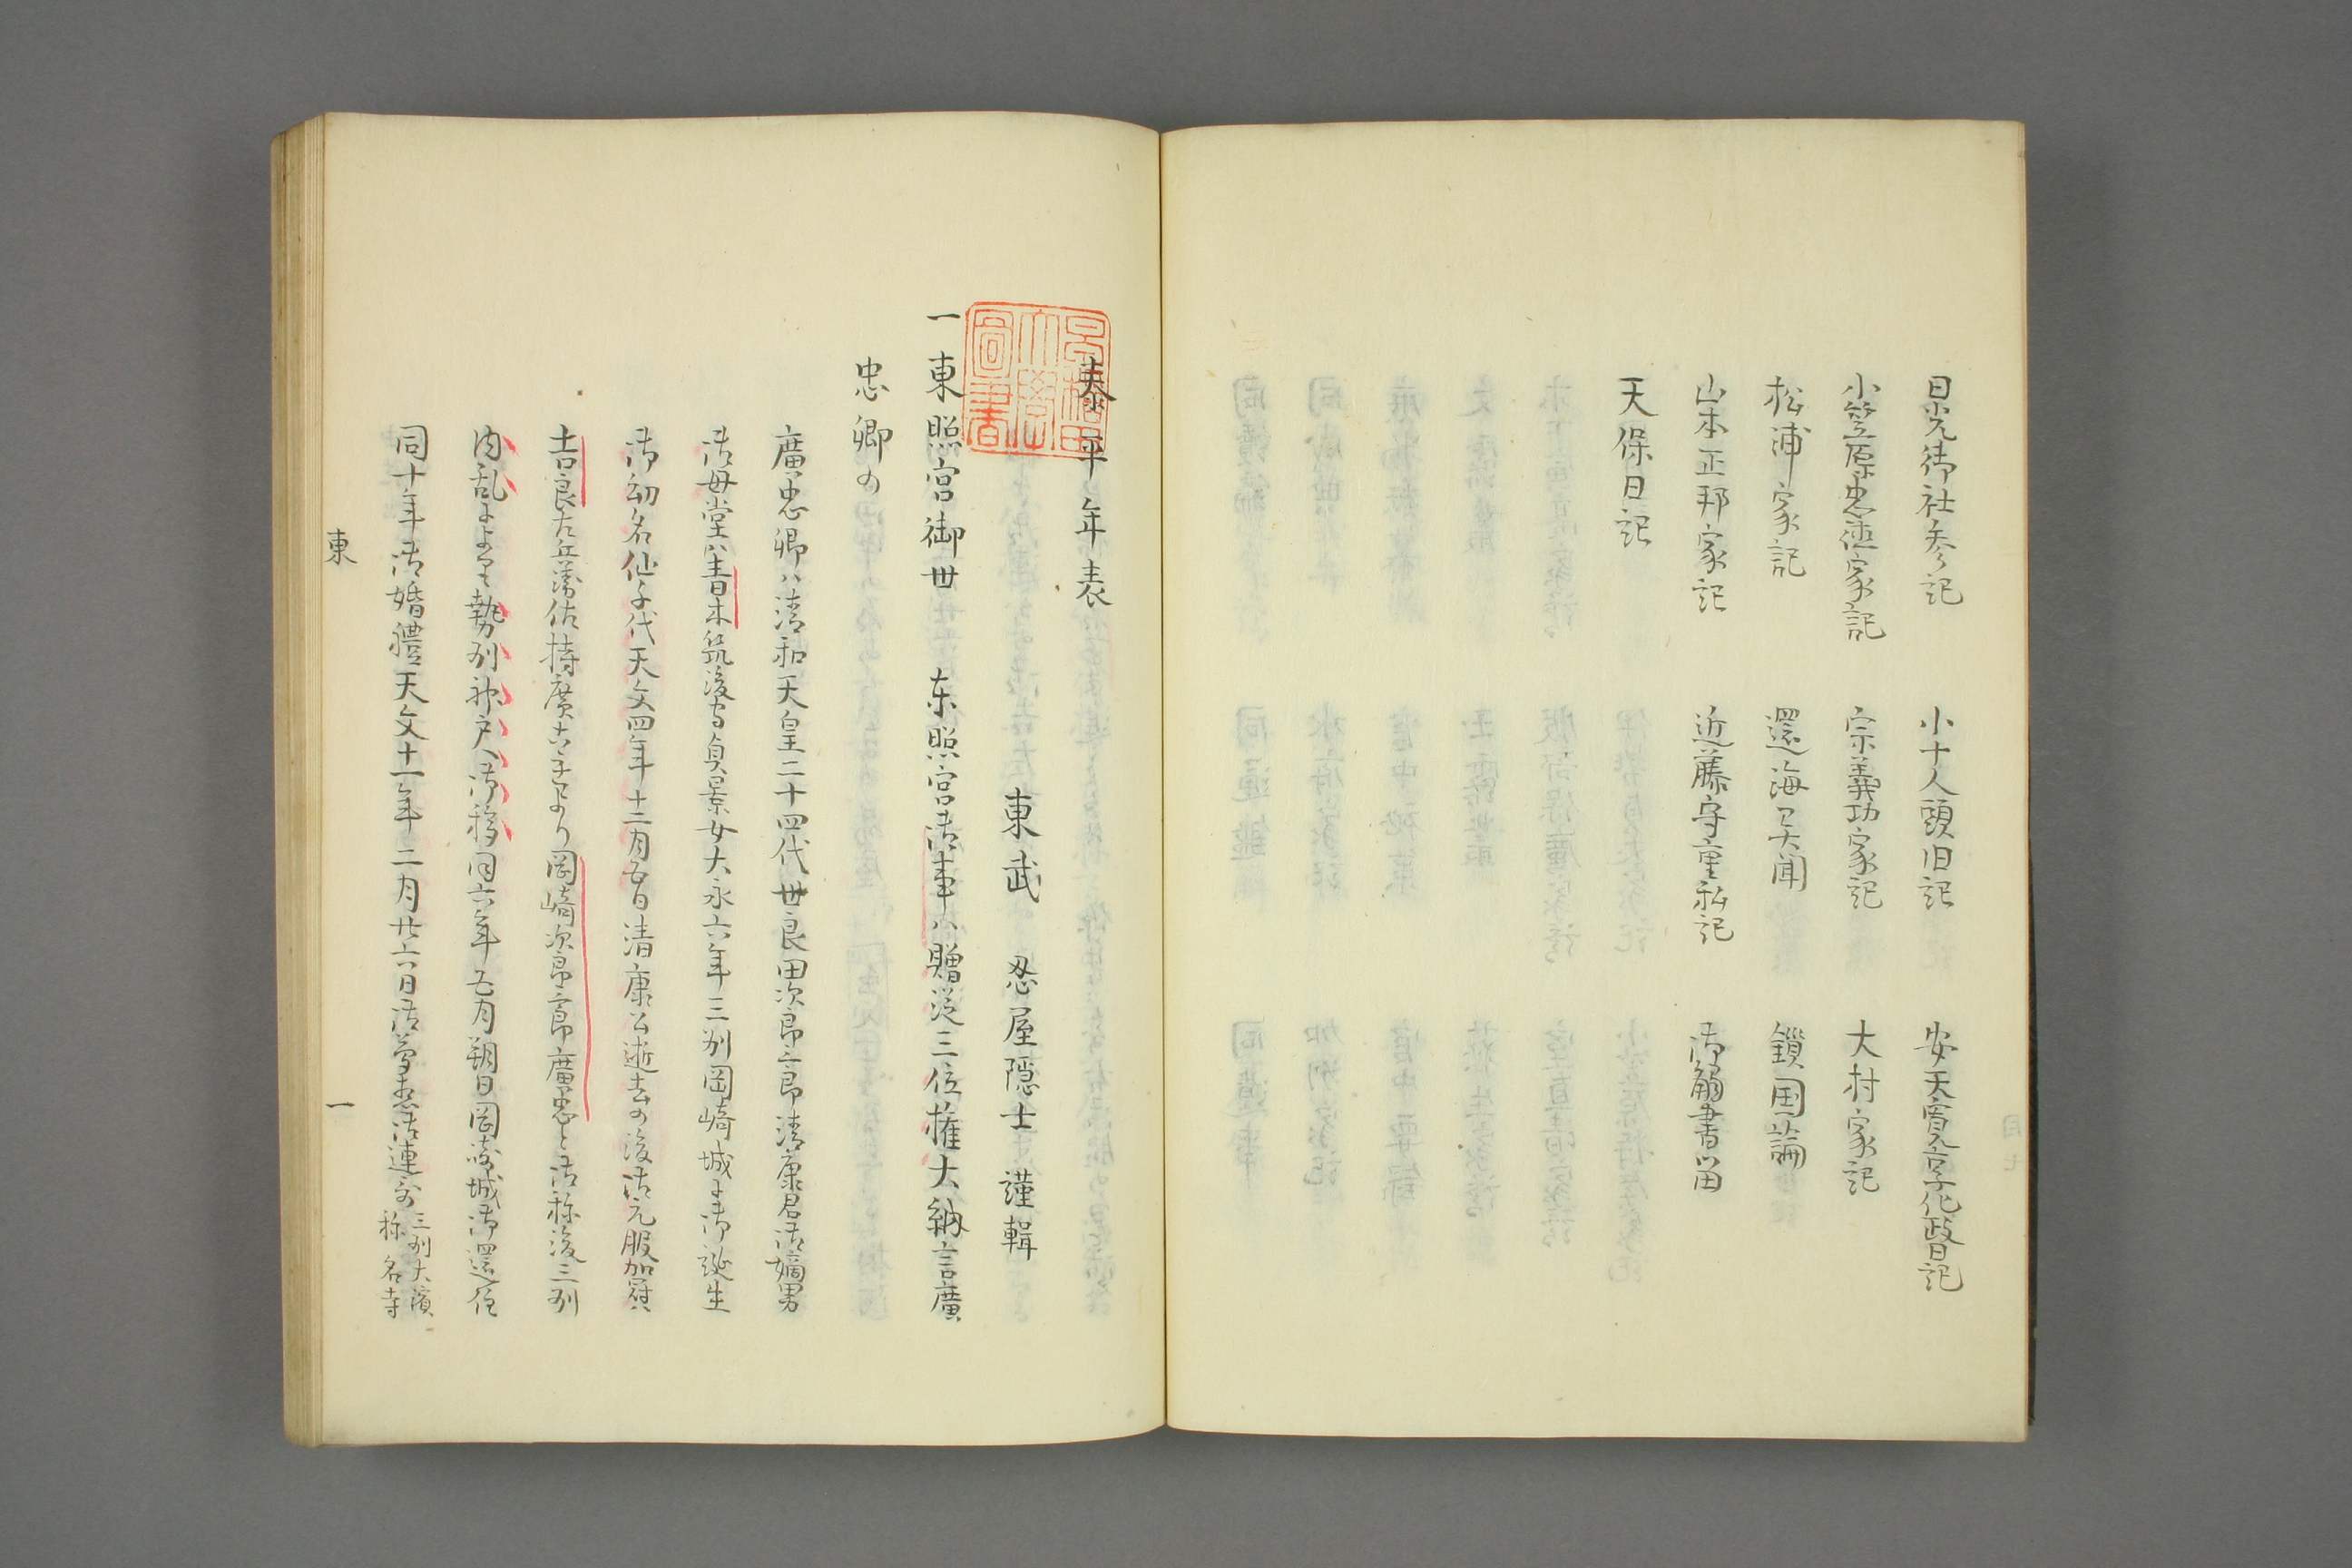 日光御社参記　小十人頭旧記　安天寛享化政日記
小笠原忠徳家記　宗義功家記　大村家記
松浦家記　還海異聞　鎖国論
山本正邦家記　近藤守重私記　御觸書留
天保日記
泰平年表
東武　忍屋隠士　謹輯
一東照宮御世　東照宮御事ハ贈従三位権大納言廣
忠卿の
廣忠卿ハ清和天皇二十四代世良田次郎三郎清康君御嫡男
御母堂ハ青木筑後守貞景女大永六年三州岡崎城に御誕生
御幼名仙千代天文四年十二月五日清康公逝去の後御元服加冠ハ
吉良左兵衛佐持廣あり岡崎次郎三郎廣忠と御称後三州
内乱により勢州神戸へ御移同六年五月朔日岡崎城御還住
同十年御婚禮天文十一年二月廿六日御夢想御連歌三州大濱称名寺
東　一
早稲田大學圖書